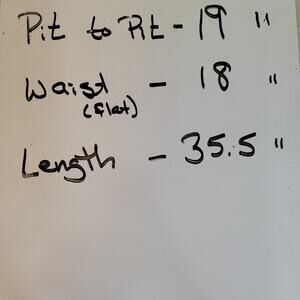 Pit to Pit - 19 "
Waist - 18 "
(flat)
Length - 35.5 "